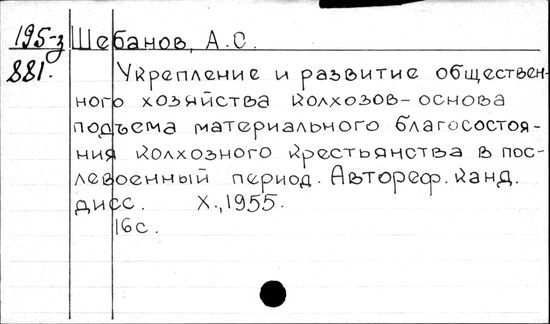 195-з Шебанов, А.С.
881.
Укрепление и развитие обществен-
ного хозяйства колхозов-основа
подъема материального благосостоя-
ния колхозного крестьянства в пос-
левоенный период. Автореф. канд.
дисс. Х., 1955.
16 с.